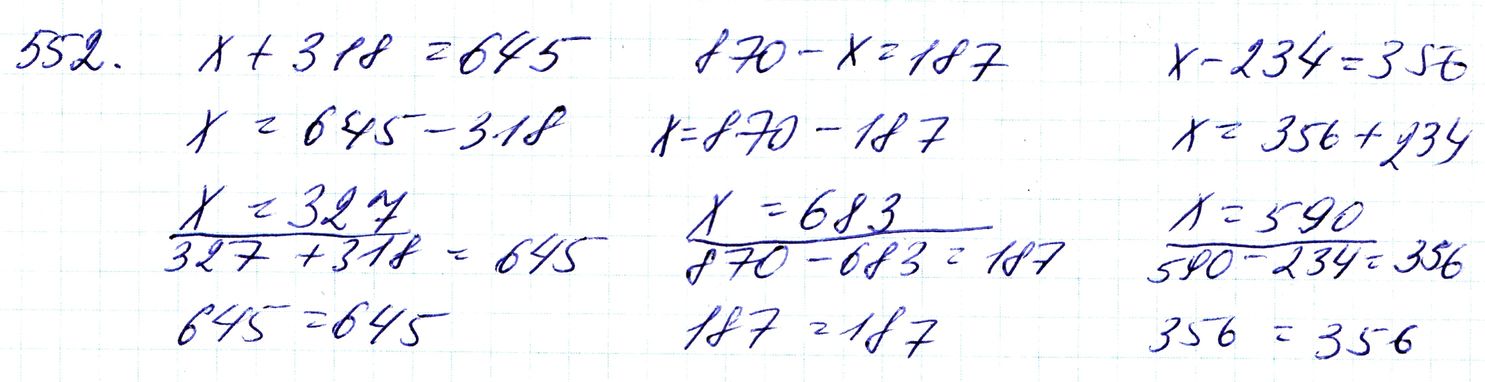 552. x + 318 = 645 870 - x = 187 x - 234 = 356
x = 645 - 318 x = 870 - 187 x = 356 + 234
x = 327 x = 683 x = 590
327 + 318 = 645 870 - 683 = 187 590 - 234 = 356
645 = 645 187 = 187 356 = 356